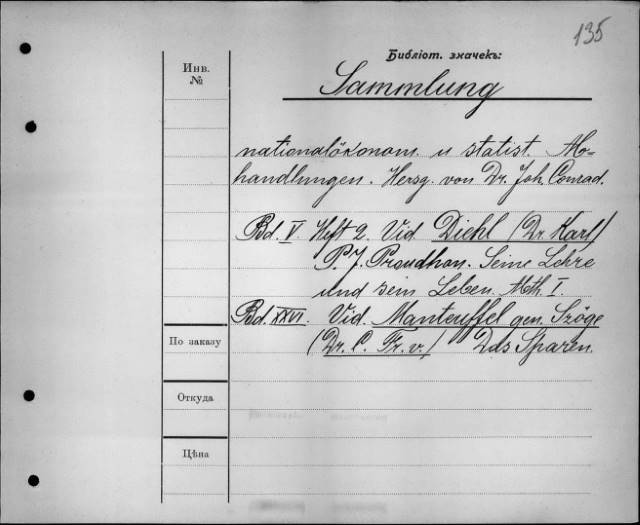 135
Библіот. значекъ:
Инв.
№
Sammlung
nationalökonom. u statist. Ab-
handlungen. Hersg. von Dr. Joh. Conrad.
Bd. V. Heft 2. Vid. Diehl (Dr. Karl)
P. J. Proudhon. Seine Lehre
und sein Leben. Abth. I.
Bd. XXVI. Vid. Manteuffel gen. Szöge
По заказу
(Dr. C. Fr. v.) Das Sparen.
Откуда
Цѣна